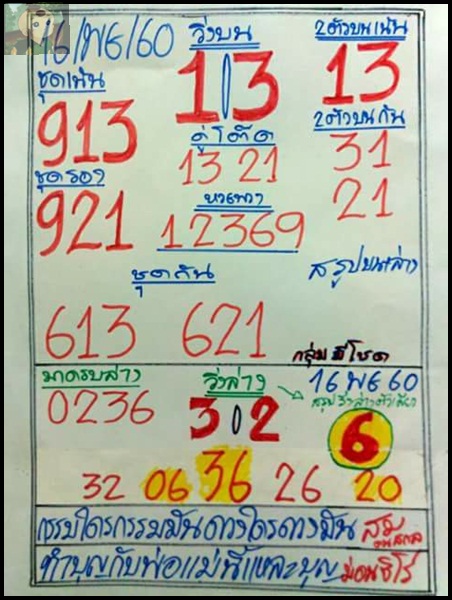 16/พย/60 วิ่งบน 2ตัวบนเน้น
ชุดเน้น 1 3 13
913 คู่โต๊ด 2ตัวบนกัน
13 21 31
ชุดรอง หางพวง 21
921 12369
ชุดกัน สรุปบนล่าง
613 621
กลุ่ม มีโชค
มาครบล่าง วิ่งล่าง 16 พย 60
0236 3 2 สรุปวิ่งล่างตัวเดียว
6
32 06 36 26 20
กรรมใครกรรมมันดวงใครดวงมัน
ทำบุญกับพ่อแม่นี่แหละบุญ